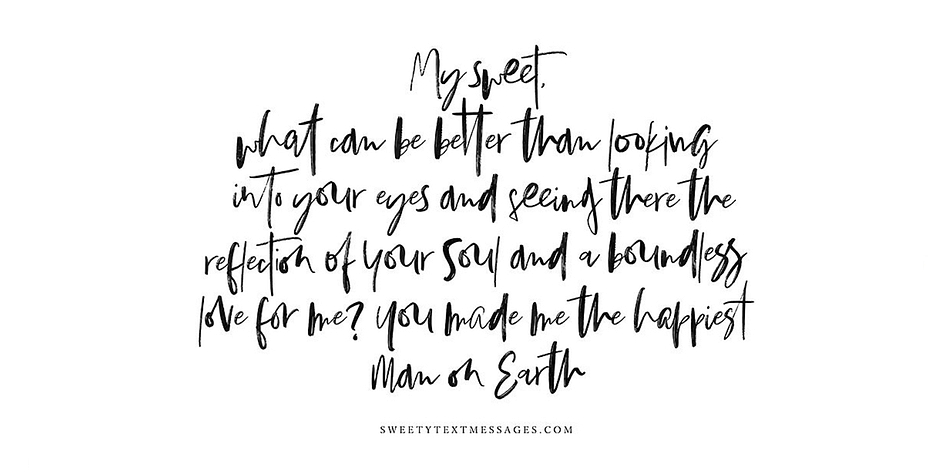 My sweet,
what can be better than looking
into your eyes and seeing there the
reflection of your soul and a boundless
love for me? you made me the happiest
Man on Earth
SWEETYTEXTMESSAGES.COM